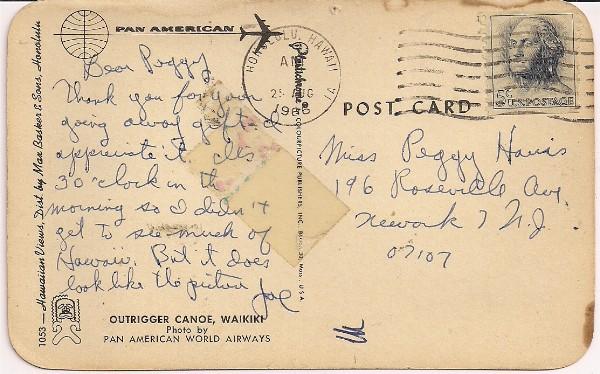 PAN AMERICAN
Dear Peggy
Thank you for your
going away gift I
appreciate it. Its
3 o'clock in the
morning so I didn't
get to see much of
Hawaii. But it does
look like the picture
Joe
OUTRIGGER CANOE, WAIKIKI
Photo by
PAN AMERICAN WORLD AIRWAYS
1053—Hawaiian Views, Dist. by Max Basker & Sons, Honolulu
Plastichrome ®
BY COLOURPICTURE PUBLISHERS, INC. Boston 30, Mass., U.S.A.
HONOLULU, HAWAII
AM
25 AUG
POST CARD
5c U.S. POSTAGE
Miss Peggy Harris
196 Roseville Ave.
Newark 7 N.J.
07107